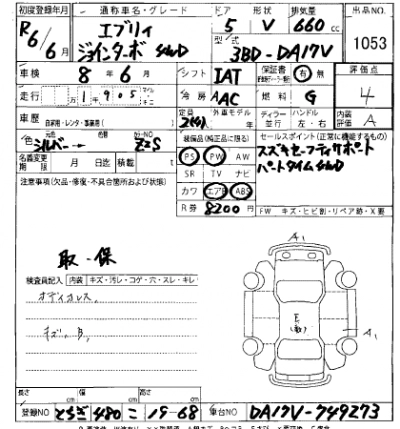 初度登録年月 通称車名・グレード ドア 形状 排気量 出品NO.
R6/6月 エブリイ ジョインターボ 4WD 5 V 660cc 1053
型式 3BD-DA17V
車検 8年6月 シフト IAT 保証書 有・無 評価点
走行 1,905 冷房 AAC 燃料 G 4
車歴 自家用・レンタ・事業用( ) 定員 2(4)人 外車モデル ディーラー 並行 ハンドル 左・右 内装評価 A
色 元色 シルバー→ 色替 カラーNO ZZS 装備品(純正品に限る) セールスポイント(正常に機能するもの)
名義変更期限 月 日迄 積載 PS PW AW スズキセーフティサポート
注意事項(欠品・修復・不具合箇所および状態) SR TV ナビ パートタイム4WD
カワ エアB ABS
R券 8200円 FW キズ・ヒビ割・リペア跡・X要
取・保
検査員記入 内装 キズ・汚レ・コゲ・穴・スレ・キレ
オディオレス
キズ、B、
A1
E
(動)
A1
長さ cm 幅 cm 高さ cm
登録NO とちぎ 480 こ 19-68 車台NO DA17V-749273